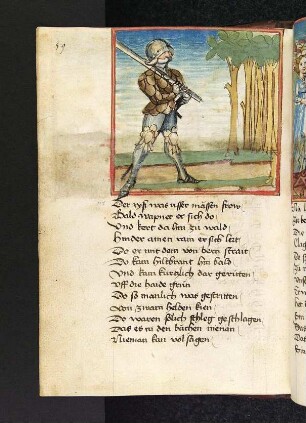 59
Der ryß was usser massen frow
Bald wapnet er sich do
Und kert da hin zu wald
Hinder ainen ram er sich leit
Do er mit dem von bern strait
Do kam hiltbrant hin bald
Und kam kurtzlich dar geritten
Uff die haide grün
Do so manlich was gestritten
von zwain helden kien
Do waren sölich schleg geschlagen
Das es zu den büchern nienan
Nieman kan vol sagen